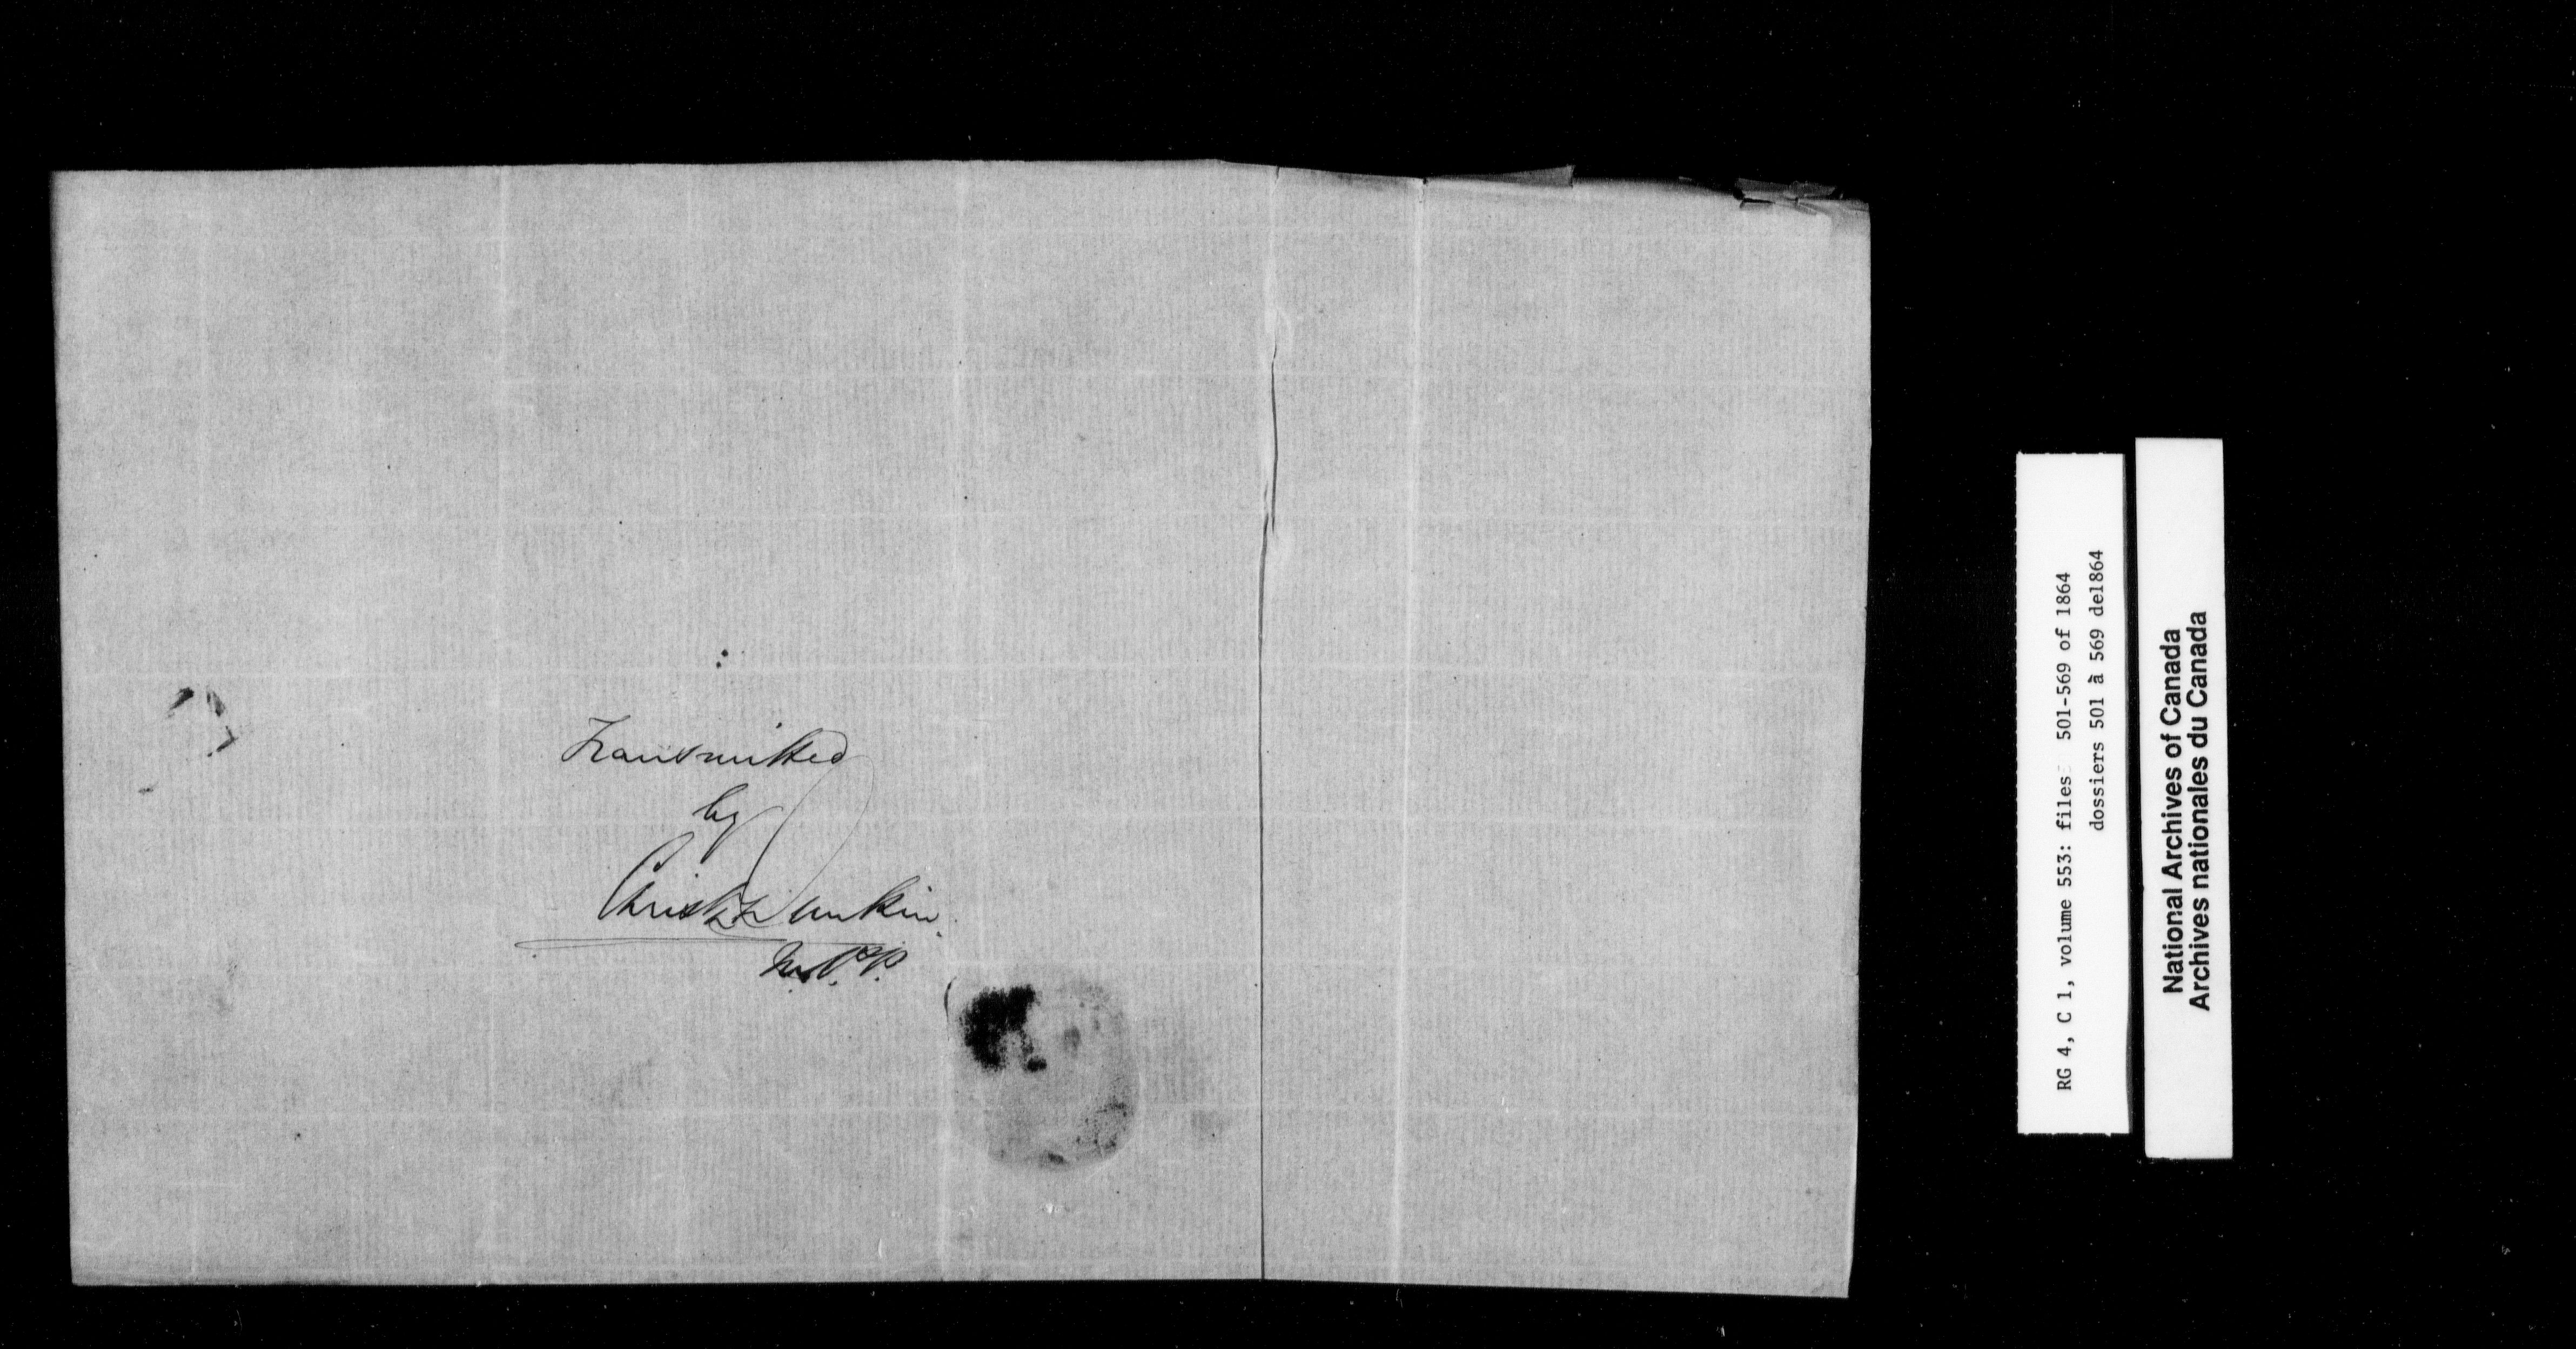 Transmitted
by
Christr Dunkin.
M.P.P.
RG 4, C 1, volume 553: files 501-569 of 1864
dossiers 501 à 569 de1864
National Archives of Canada
Archives nationales du Canada